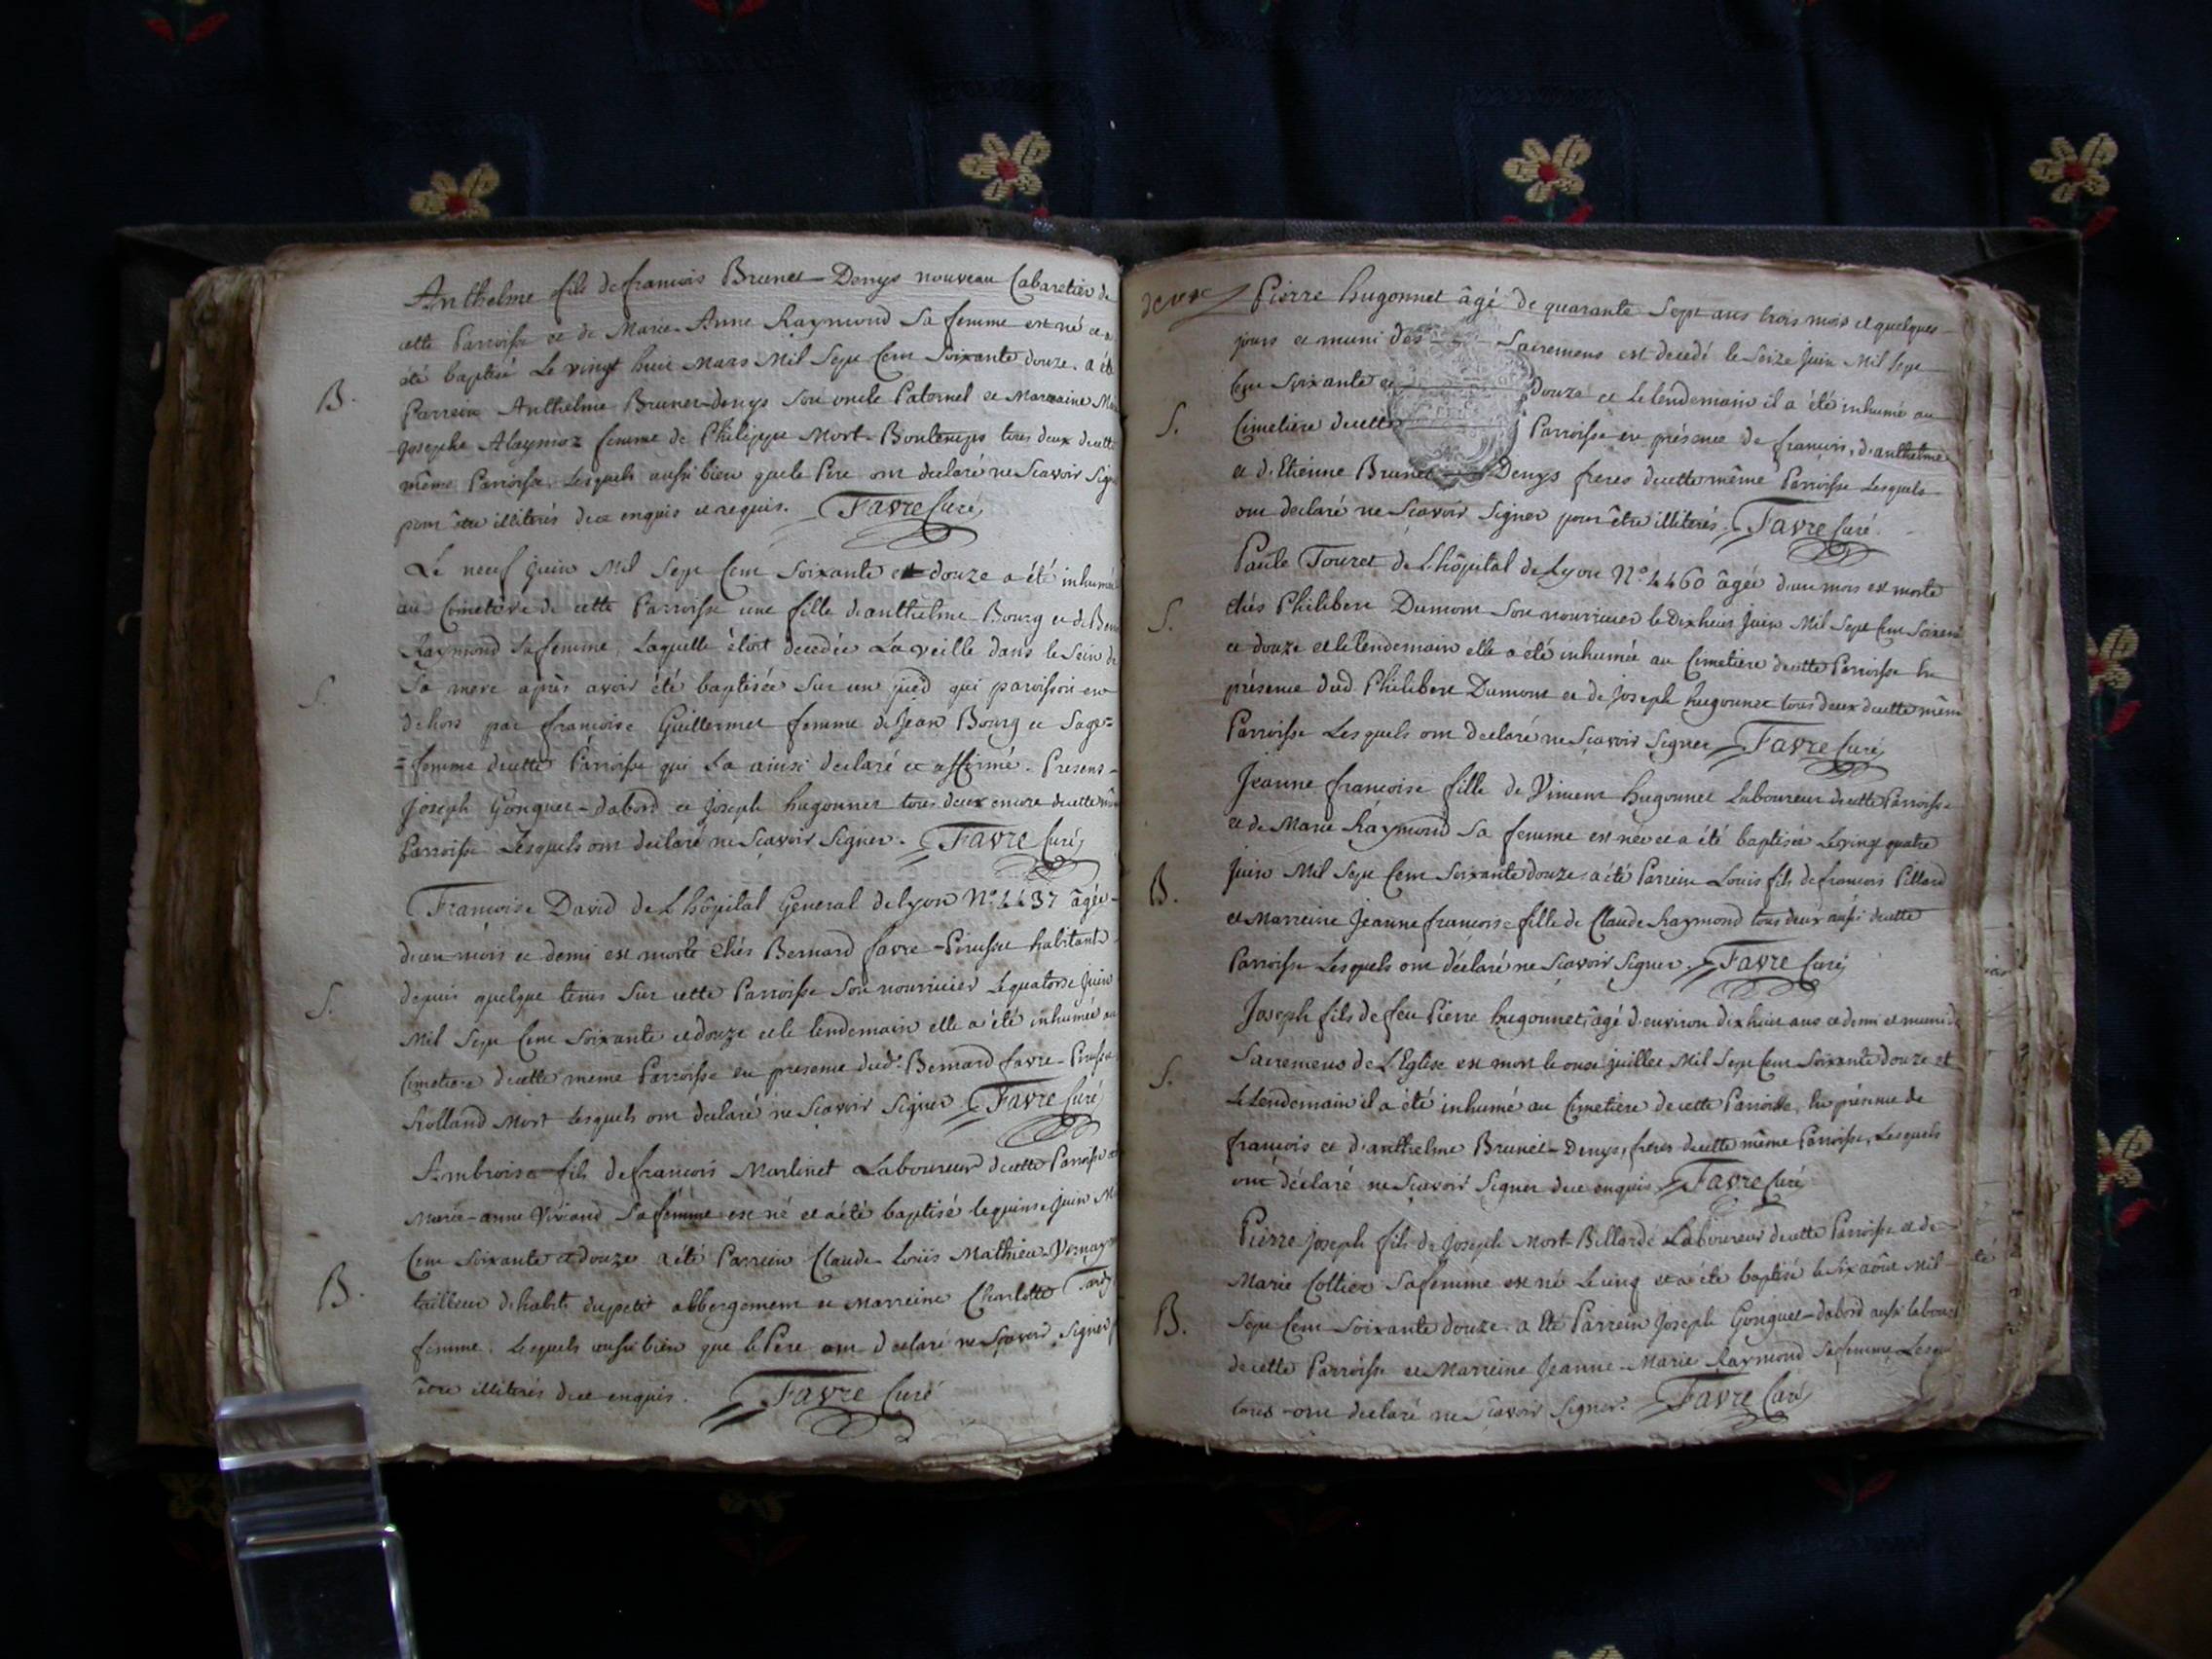 Anthelme fils de francois Brunet-Denys nouveau Cabaretier de
cette Parroisse et de Marie-Anne Raymond Sa femme est né et a
été baptisé Le vingt huit Mars Mil Sept Cent Soixante douze. a été
B.
Parrein Anthelme Brunet-denys Son oncle Paternel et Marraine
Josephe Alaymoz femme de Philippe Mort-Bontemps tous deux de cette
même Parroisse, Lesquels aussi bien que le Pere ont declaré ne Scavoir
pour être illiterés de ce enquis et requis. Favre Curé
Le neuf Juin Mil Sept Cent Soixante et douze a été inhumée
au Cimetière de cette Parroisse une fille d'anthelme Bourg et de
Raymond Sa femme, Laquelle étoit decedée La veille dans le Sein de
S.
Sa mere après avoir été baptisée Sur un pied qui paroissoit en
dehors par francoise Guillermet femme de Jean Bourg et Sage=
=femme de cette Parroisse qui L'a ainsi declaré et affirmé. Presens
Joseph Gonguet-dabord et Joseph hugonnet tous deux encore de cette
Parroisse Lesquels ont declaré ne Scavoir Signer. Favre Curé
Francoise David de L'hôpital General de Lyon N° 4437 âgée
d'un mois et demi est morte Chés Bernard favre-Pirusse habitant
depuis quelque tems Sur cette Parroisse Son nourricier Le quatorse Juin
S.
Mil Sept Cent Soixante et douze et le lendemain elle a été inhumée au
Cimetiere de cette meme Parroisse en presence dud. Bernard favre-
Rolland Mort Lesquels ont declaré ne Scavoir Signer Favre Curé
Ambroise fils de francois Martinet Laboureur de cette Parroisse et
Marie-anne Viviand Sa femme est né et a été baptisé le quinse Juin
Cent Soixante et douze a été Parrein Claude-Louis Mathieu-
B.
tailleur d'habits du petit abbergement et Marreine Charlotte
femme. Lesquels aussi bien que le Pere ont declaré ne Scavoir Signer
être illiterés de ce enquis. Favre Curé
Pierre hugonnet âgé de quarante Sept ans trois mois et quelques
jours et muni des Sacremens est decedé le Seize Juin Mil Sept
Cent Soixante et Douze et Le lendemain il a été inhumé au
S.
Cimetiere de cette Parroisse en présence de francois, d'anthelme
et d'Etienne Brunet Denys freres de cette même Parroisse Lesquels
ont declaré ne Scavoir Signer pour être illiterés. Favre Curé
Paule Touret de L'hôpital de Lyon N° 4460 âgée d'un mois est morte
S.
Chés Philibert Dumont Son nourricier le Dix huit Juin Mil Sept Cent
et douze et le lendemain elle a été inhumée au Cimetiere de cette Parroisse En
présence dud. Philibert Dumont et de Joseph hugonnet tous deux de cette même
Parroisse Lesquels ont declaré ne Scavoir Signer Favre Curé
Jeanne francoise fille de Vincent hugonnet Laboureur de cette Parroisse
et de Marie Raymond Sa femme est née et a été baptisée Le vingt quatre
B.
Juin Mil Sept Cent Soixante douze. a été Parrein Louis fils de francois Pillard
et Marreine Jeanne francoise fille de Claude Raymond tous deux aussi de cette
Parroisse Lesquels ont déclaré ne Scavoir Signer. Favre Curé
Joseph fils de feu Pierre hugonnet, âgé d'environ dix huit ans et demi et muni
S.
Sacremens de L'Eglise est mort le onze juillet Mil Sept Cent Soixante douze et
Le Lendemain il a été inhumé au Cimetiere de cette Parroisse, En présence de
francois et d'anthelme Brunet-Denys, freres de cette même Parroisse, Lesquels
ont déclaré ne Scavoir Signer de ce enquis. Favre Curé
Pierre Joseph fils de Joseph Mort-Billarde Laboureur de cette Parroisse et de
Marie Collier Sa femme est né Le cinq et a été baptisé le Six août Mil
B.
Sept Cent Soixante douze. a été Parrein Joseph Gonguet-dabord aussi
de cette Parroisse et Marreine Jeanne-Marie Raymond Sa femme
tous ont declaré ne Scavoir Signer. Favre Curé